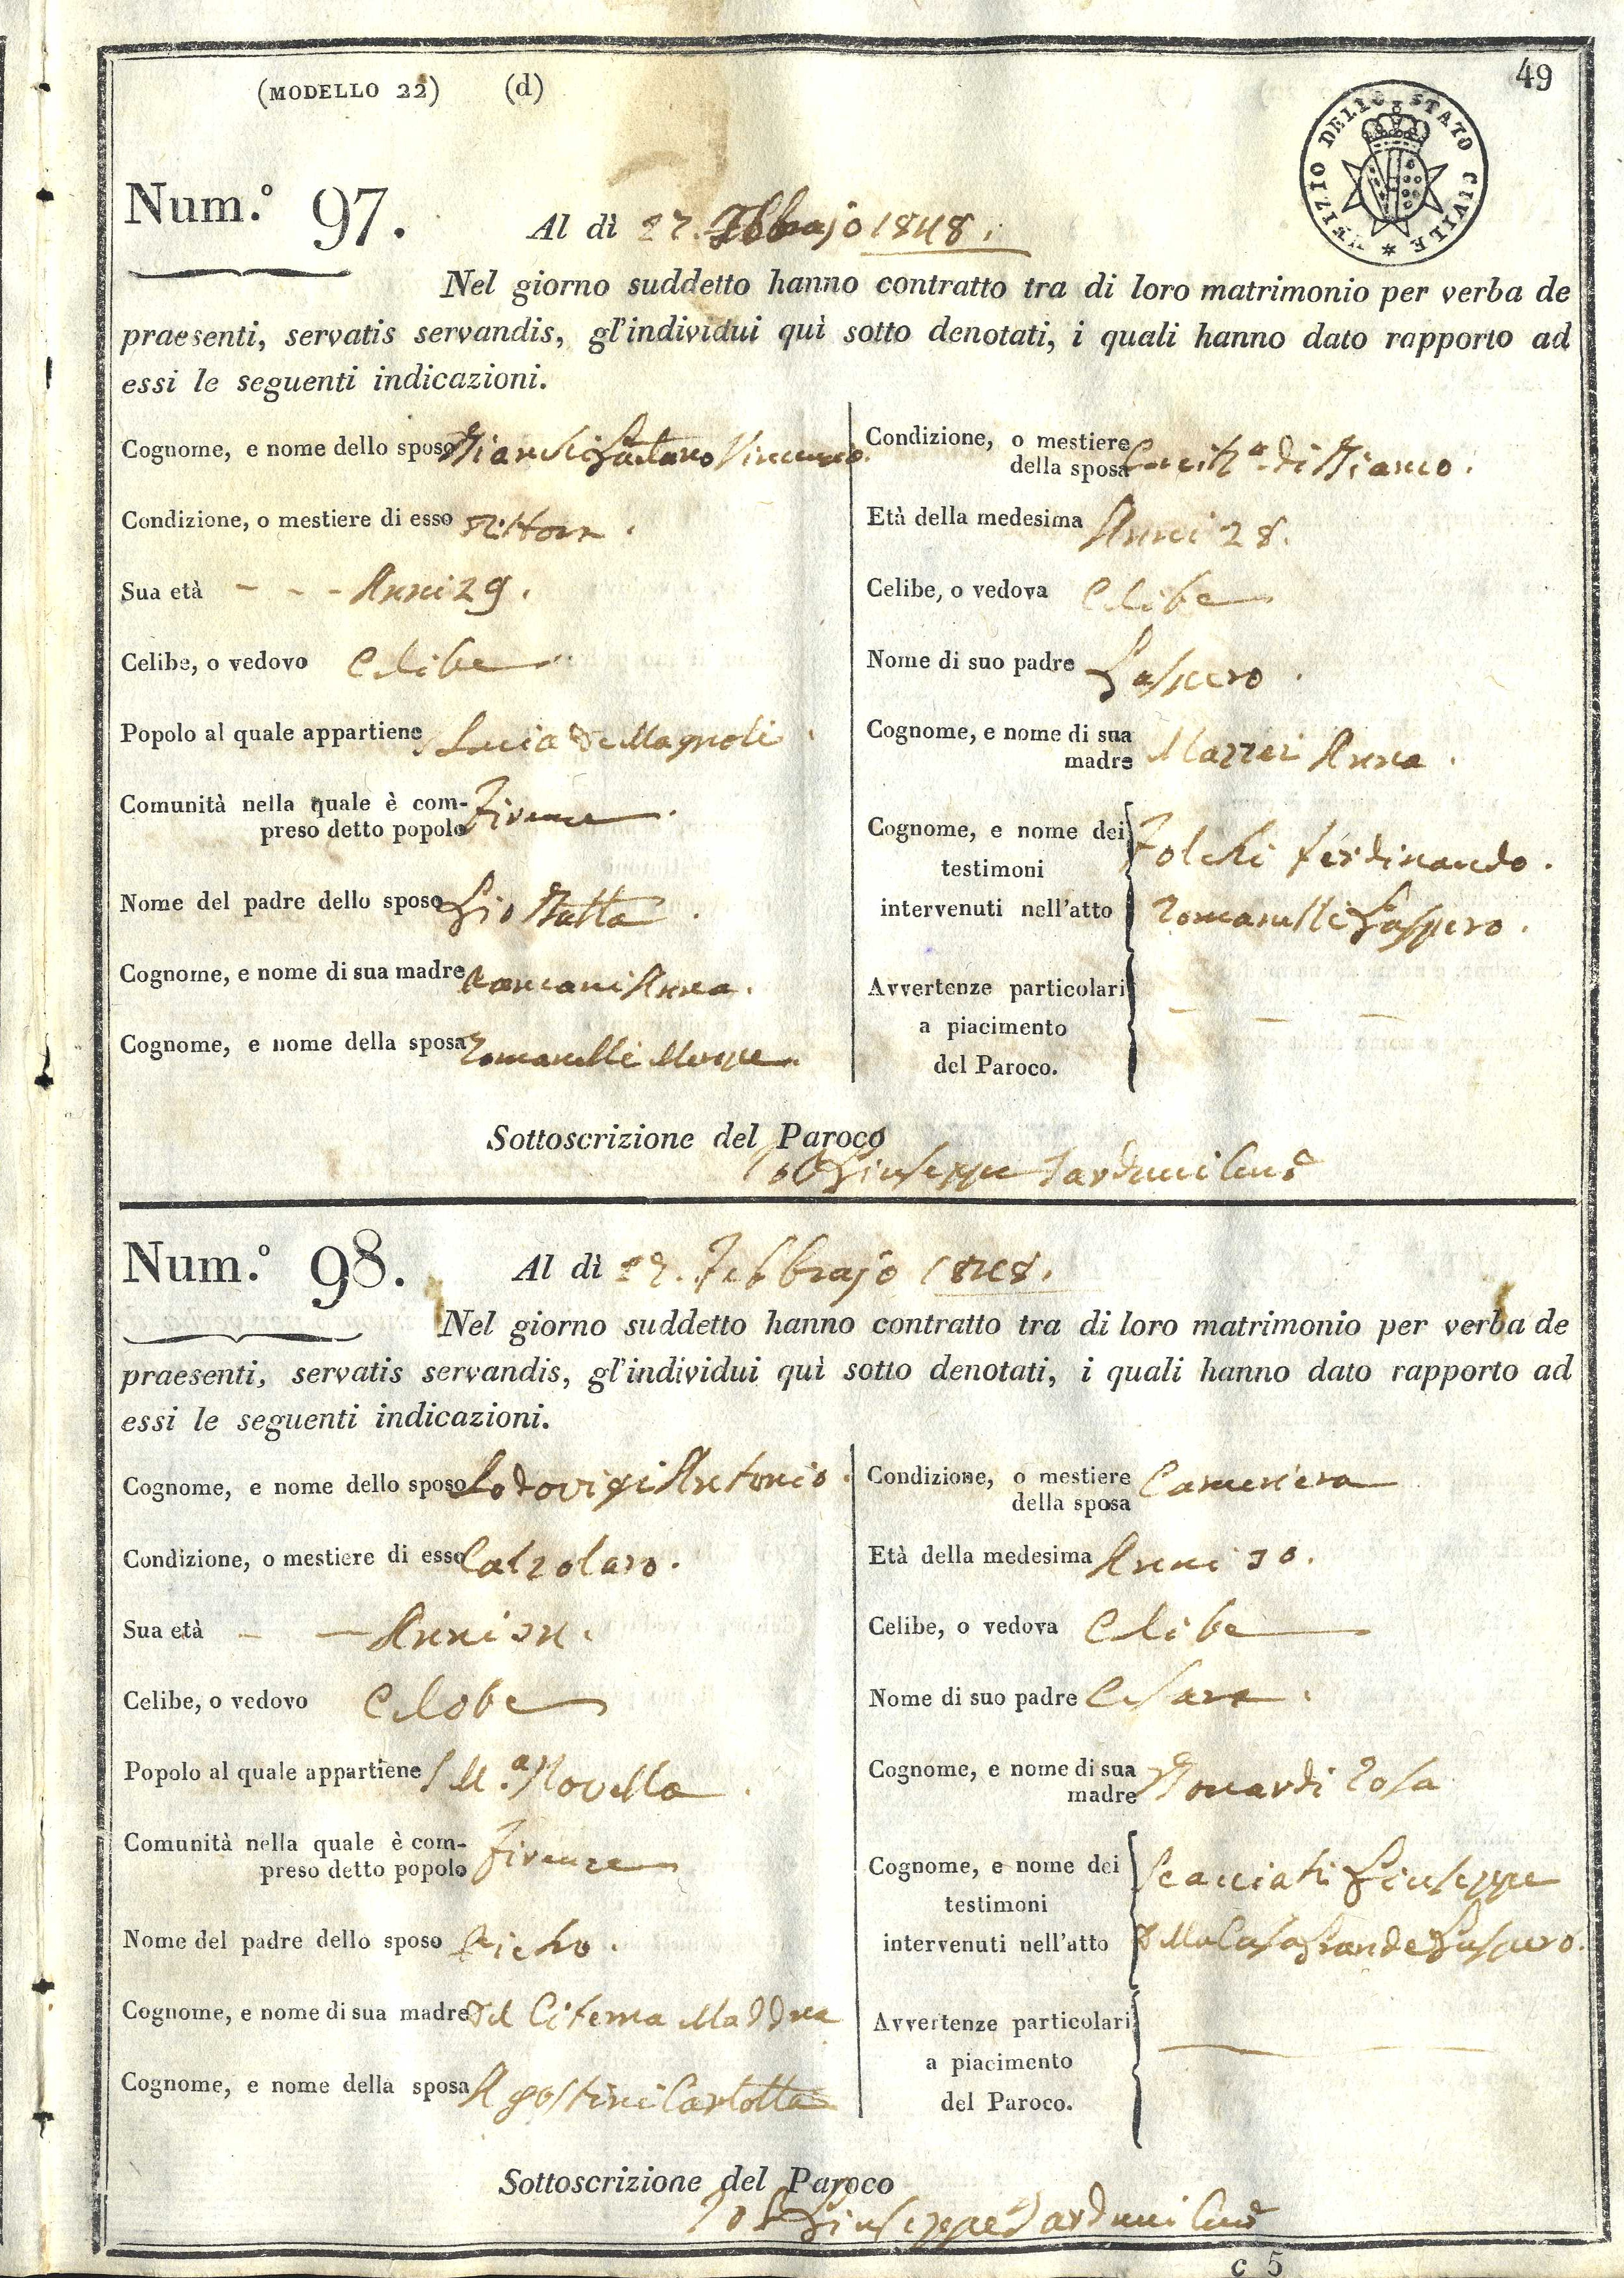 49
(MODELLO 22) (d)
UFIZIO DELLO STATO CIVILE
Num.° 97.
Al dì 27. Febbrajo 1848.
Nel giorno suddetto hanno contratto tra di loro matrimonio per verba de
praesenti, servatis servandis, gl'individui quì sotto denotati, i quali hanno dato rapporto ad
essi le seguenti indicazioni.
Cognome, e nome dello sposo Bianchi Gaetano Vincenzo.
Condizione, o mestiere di esso Pittore.
Sua età - - - Anni 29.
Celibe, o vedovo Celibe
Popolo al quale appartiene S Lucia de Magnoli.
Comunità nella quale è com-
preso detto popolo Firenze.
Nome del padre dello sposo Gio Batta.
Cognome, e nome di sua madre Anna.
Cognome, e nome della sposa Romanelli
Condizione, o mestiere
della sposa Cucit.ª di Bianco.
Età della medesima Anni 28.
Celibe, o vedova Celibe
Nome di suo padre Gaspero.
Cognome, e nome di sua
madre Mazzei Anna.
Cognome, e nome dei
testimoni
intervenuti nell'atto
Folchi Ferdinando.
Romanelli Gaspero.
Avvertenze particolari
a piacimento
del Paroco.
Sottoscrizione del Paroco
Giuseppe Tarduci
Num.° 98.
Al dì 27. Febbrajo 1848.
Nel giorno suddetto hanno contratto tra di loro matrimonio per verba de
praesenti, servatis servandis, gl'individui quì sotto denotati, i quali hanno dato rapporto ad
essi le seguenti indicazioni.
Cognome, e nome dello sposo Lodovigi Antonio.
Condizione, o mestiere di esso Calzolaro.
Sua età - - Anni 34.
Celibe, o vedovo Celobe
Popolo al quale appartiene S M.ª Novella.
Comunità nella quale è com-
preso detto popolo Firenze
Nome del padre dello sposo Pietro.
Cognome, e nome di sua madre Del Citerna Maddna
Cognome, e nome della sposa Agostini Carlotta
Condizione, o mestiere
della sposa Cameriera
Età della medesima Anni 30.
Celibe, o vedova Celibe
Nome di suo padre Cesare.
Cognome, e nome di sua
madre Rosa
Cognome, e nome dei
testimoni
intervenuti nell'atto
Scacciati Giuseppe
Della Casa Grande Gaspero.
Avvertenze particolari
a piacimento
del Paroco.
Sottoscrizione del Paroco
Giuseppe Tarduci
c 5